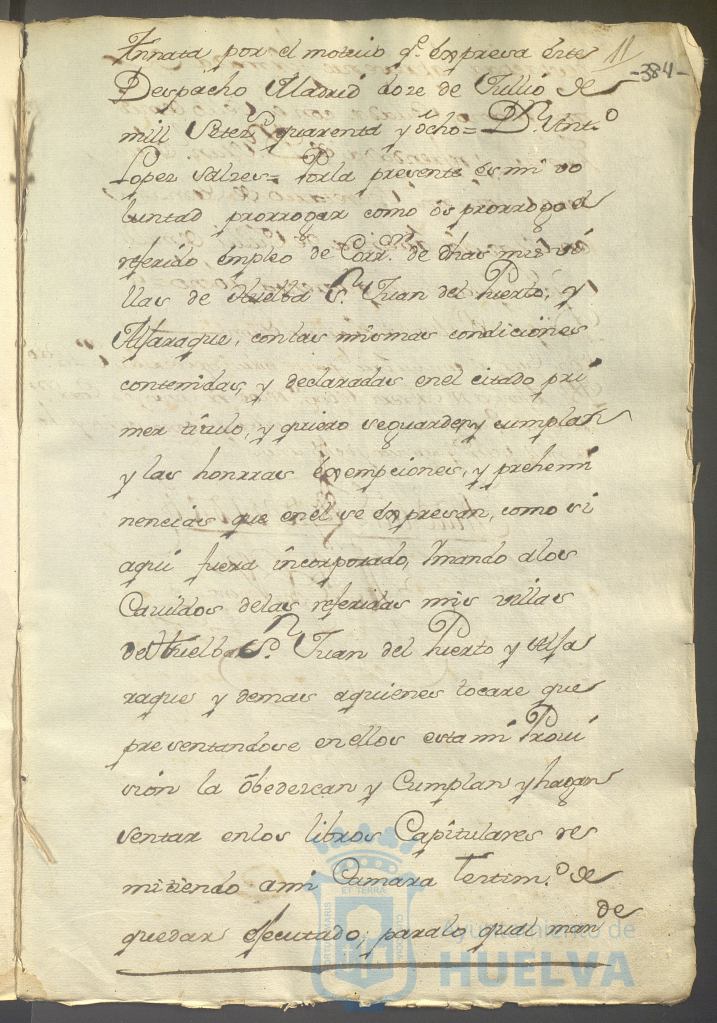 Annata por el motivo q.e expresa este
11
-384-
Despacho Madrid doze de Jullio de
mill setez.s quarenta y ôcho= D.n Ant.o
Lopez Salzes= Porla presente és mi vo
luntad prorrogar como ôs prorrogo el
referido émpleo de Corr.or de dhas mis vi
llas de Huelba S.n Juan del Puerto, y
Aljaraque, conlas mismas condiciones
contenidas, y declaradas enel citado pri
mer titulo, y quiero seguarden, y cumplan
y las honrras éxempciones, y prehemi
nencias que enel se éxpresan, como si
aqui fuera incorporado, Ymando alos
Cavildos delas referidas mis villas
de Huelba S.n Juan del Puerto y Alja
raque y demas aquienes tocare que
presentandose enellos esta mi Provi
sión la ôbedezcan y Cumplan y hagan
sentar enlos libros Capitulares res
mitiendo ami Camara testim.o de
quedar éjecutado; paralo qual man
de
Ayuntamiento de
HUELVA